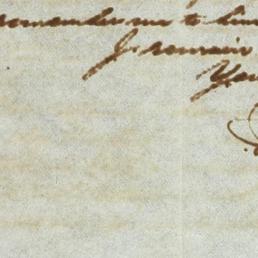 remember me to him
I remain
You